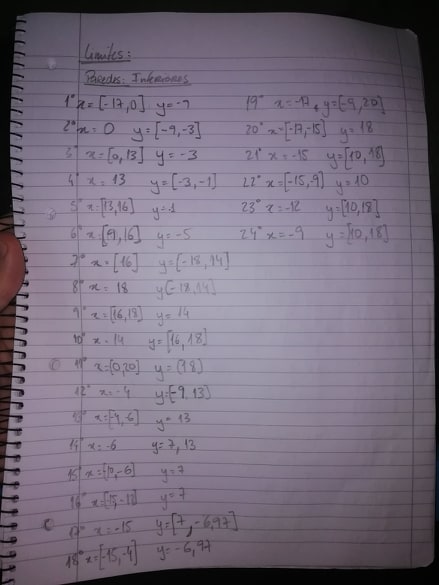 Límites:
Paredes: Interiores
1º x=[-17,0] y=-9
2º x=0 y=[-9,-3]
3º x=[0,13] y=-3
4º x=13 y=[-3,-1]
5º x=[13,16] y=-1
6º x=[9,16] y=-5
7º x=[16] y=[-18,14]
8º x=18 y[-18,14]
9º x=[16,18] y=14
10º x=14 y=[16,18]
11º x=[0,20] y=[18]
12º x=-4 y=[-9,13]
13º x=[-4,6] y=13
14º x=-6 y=7,13
15º x=[10,-6] y=7
16º y=7
17º x=-15 y=[7,-6,97]
18º x=[-15,-4] y=-6,97
19º x=-17 y=[-9,20]
20º x=[-17,-15] y=18
21º x=-15 y=[10,18]
22º x=[-15,-9] y=10
23º x=-12 y=[10,18]
24º x=-9 y=[10,18]